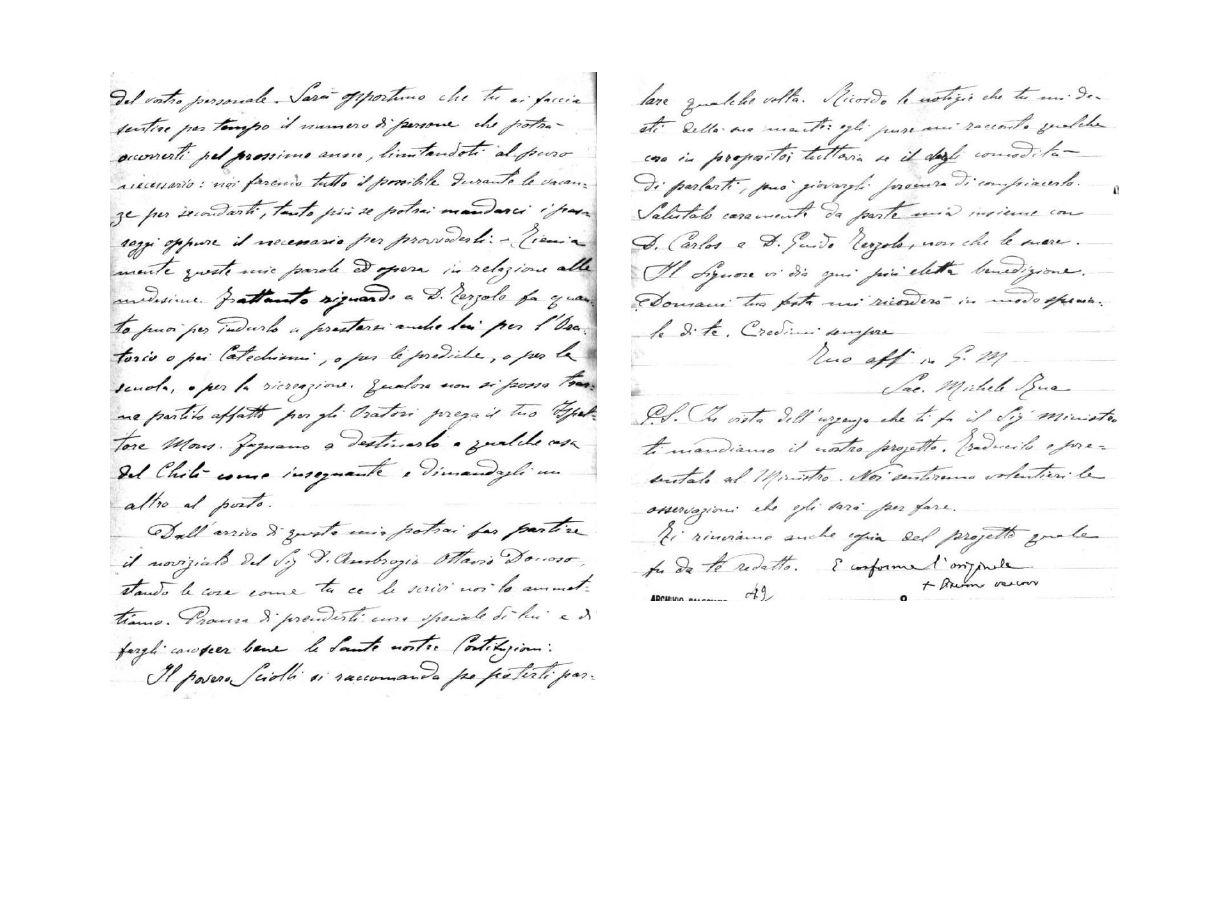 del vostro personale. Sarà opportuno che tu ci faccia
sentire per tempo il numero di persone che potrà
occorrerti pel prossimo anno, limitandoti al puro
necessario: noi faremo tutto il possibile durante le vacan-
ze per secondarti, tanto più se potrai mandarci i pas-
saggi oppure il necessario per provvederli. - Tieni a
mente queste mie parole ed opera in relazione alle
medesime. Frattanto riguardo a D. Terzolo fa quan-
to puoi per indurlo a prestarsi anche lui per l'Ora-
torio o pei Catechismi, o per le prediche, o per la
scuola, o per la ricreazione. Qualora non si possa trar-
ne partito affatto per gli Oratori prega il tuo Ispet-
tore Mons. Fagnano a destinarlo a qualche casa
del Chilì come insegnante e dimandagli un
altro al posto.
Dall'arrivo di questa mia potrai far partire
il noviziato del Sig D. Ambrogio Ottavio Donoso,
stando le cose come tu ce le scrivi noi lo ammet-
tiamo. Procura di prenderti cura speciale di lui e di
fargli conoscer bene le Sante nostre Costituzioni.
Il povero Sciolli si raccomanda per poterti par-
lare qualche volta. Ricordo le notizie che tu mi de-
sti della sua mente: egli pure mi racconta qualche
cosa in proposito; tuttavia se il dargli comodità
di parlarti, può giovargli procura di compiacerlo.
Salutalo caramente da parte mia insieme con
D. Carlos e D. Guido Terzolo, non che le suore.
Il Signore vi dia ogni più eletta benedizione.
Domani tua festa mi ricorderò in modo specia-
le di te. Credimi sempre
Tuo aff in G. M
Sac. Michele Rua
P.S. In vista dell'urgenza che ti fa il Sig Ministro
ti mandiamo il nostro progetto. Traducilo e pre-
sentalo al Ministro. Noi sentiremo volentieri le
osservazioni che egli sarà per fare.
Ti rinviamo anche copia del progetto quale
fu da te redatto. E conforme l'originale
49